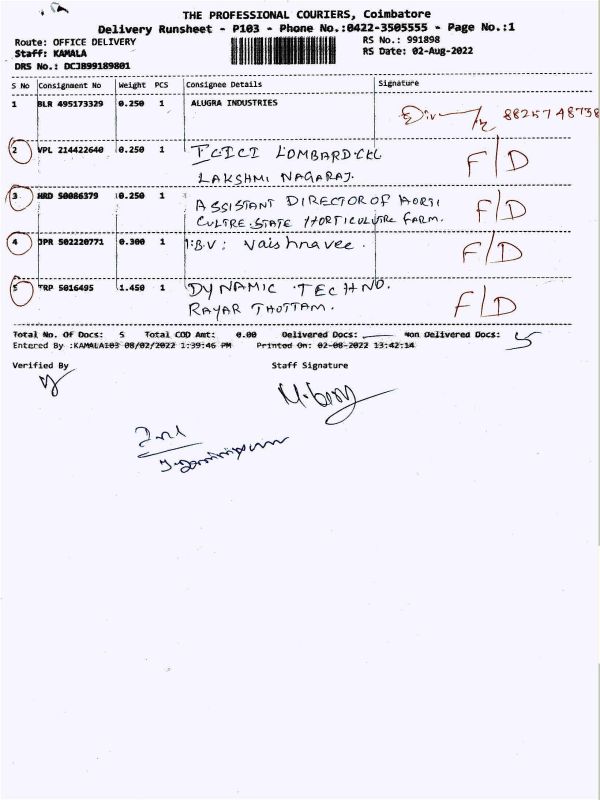 THE PROFESSIONAL COURIERS, Coimbatore
Delivery Runsheet - P103 - Phone No.:0422-3505555 - Page No.:1
Route: OFFICE DELIVERY
Staff: KAMALA
DRS No.: DCJB99189801
RS No.: 991898
RS Date: 02-Aug-2022
S No Consignment No Weight PCS Consignee Details Signature
1 BLR 495173329 0.250 1 ALUGRA INDUSTRIES 8825748738
2 VPL 214422640 0.250 1 ICICI LOMBARD F/D
LAKSHMI NAGARAJ.
3 HRD 50086379 0.250 1 ASSISTANT DIRECTOR OF HORTI F/D
CULTRE.STATE HORTICULUTRE FARM.
4 JPR 502220771 0.300 1 I.B.V: Vaishnavee. F/D
5 TRP 5016495 1.450 1 DYNAMIC TECHNO. F/D
RAYAR THOTTAM.
Total No. Of Docs: 5 Total COD Amt: 0.00 Delivered Docs: Non Delivered Docs: 5
Entered By :KAMALA103 08/02/2022 1:39:46 PM Printed On: 02-08-2022 13:42:14
Verified By Staff Signature